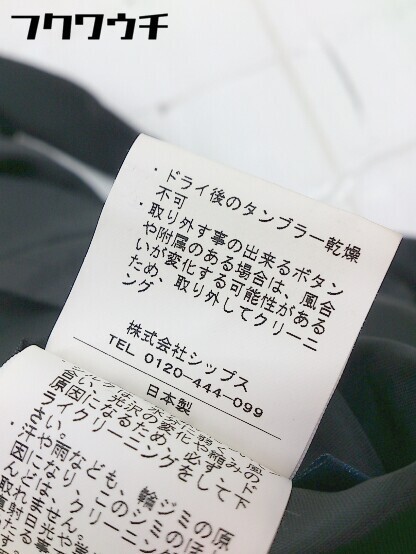 フクワウチ
・ドライ後のタンブラー乾燥
不可
・取り外す事の出来るボタン
や附属のある場合は、風合
いが変化する可能性がある
ため、取り外してクリーニ
ング
株式会社シップス
TEL 0120-444-099
日本製
合い、光沢の変化や縮みの
原因になるため、必ずド
ライクリーニングをして下
さい
・汗や雨なども、輪ジミの原
因になり、このシミのほ
とんどは、クリーニング
取れません。